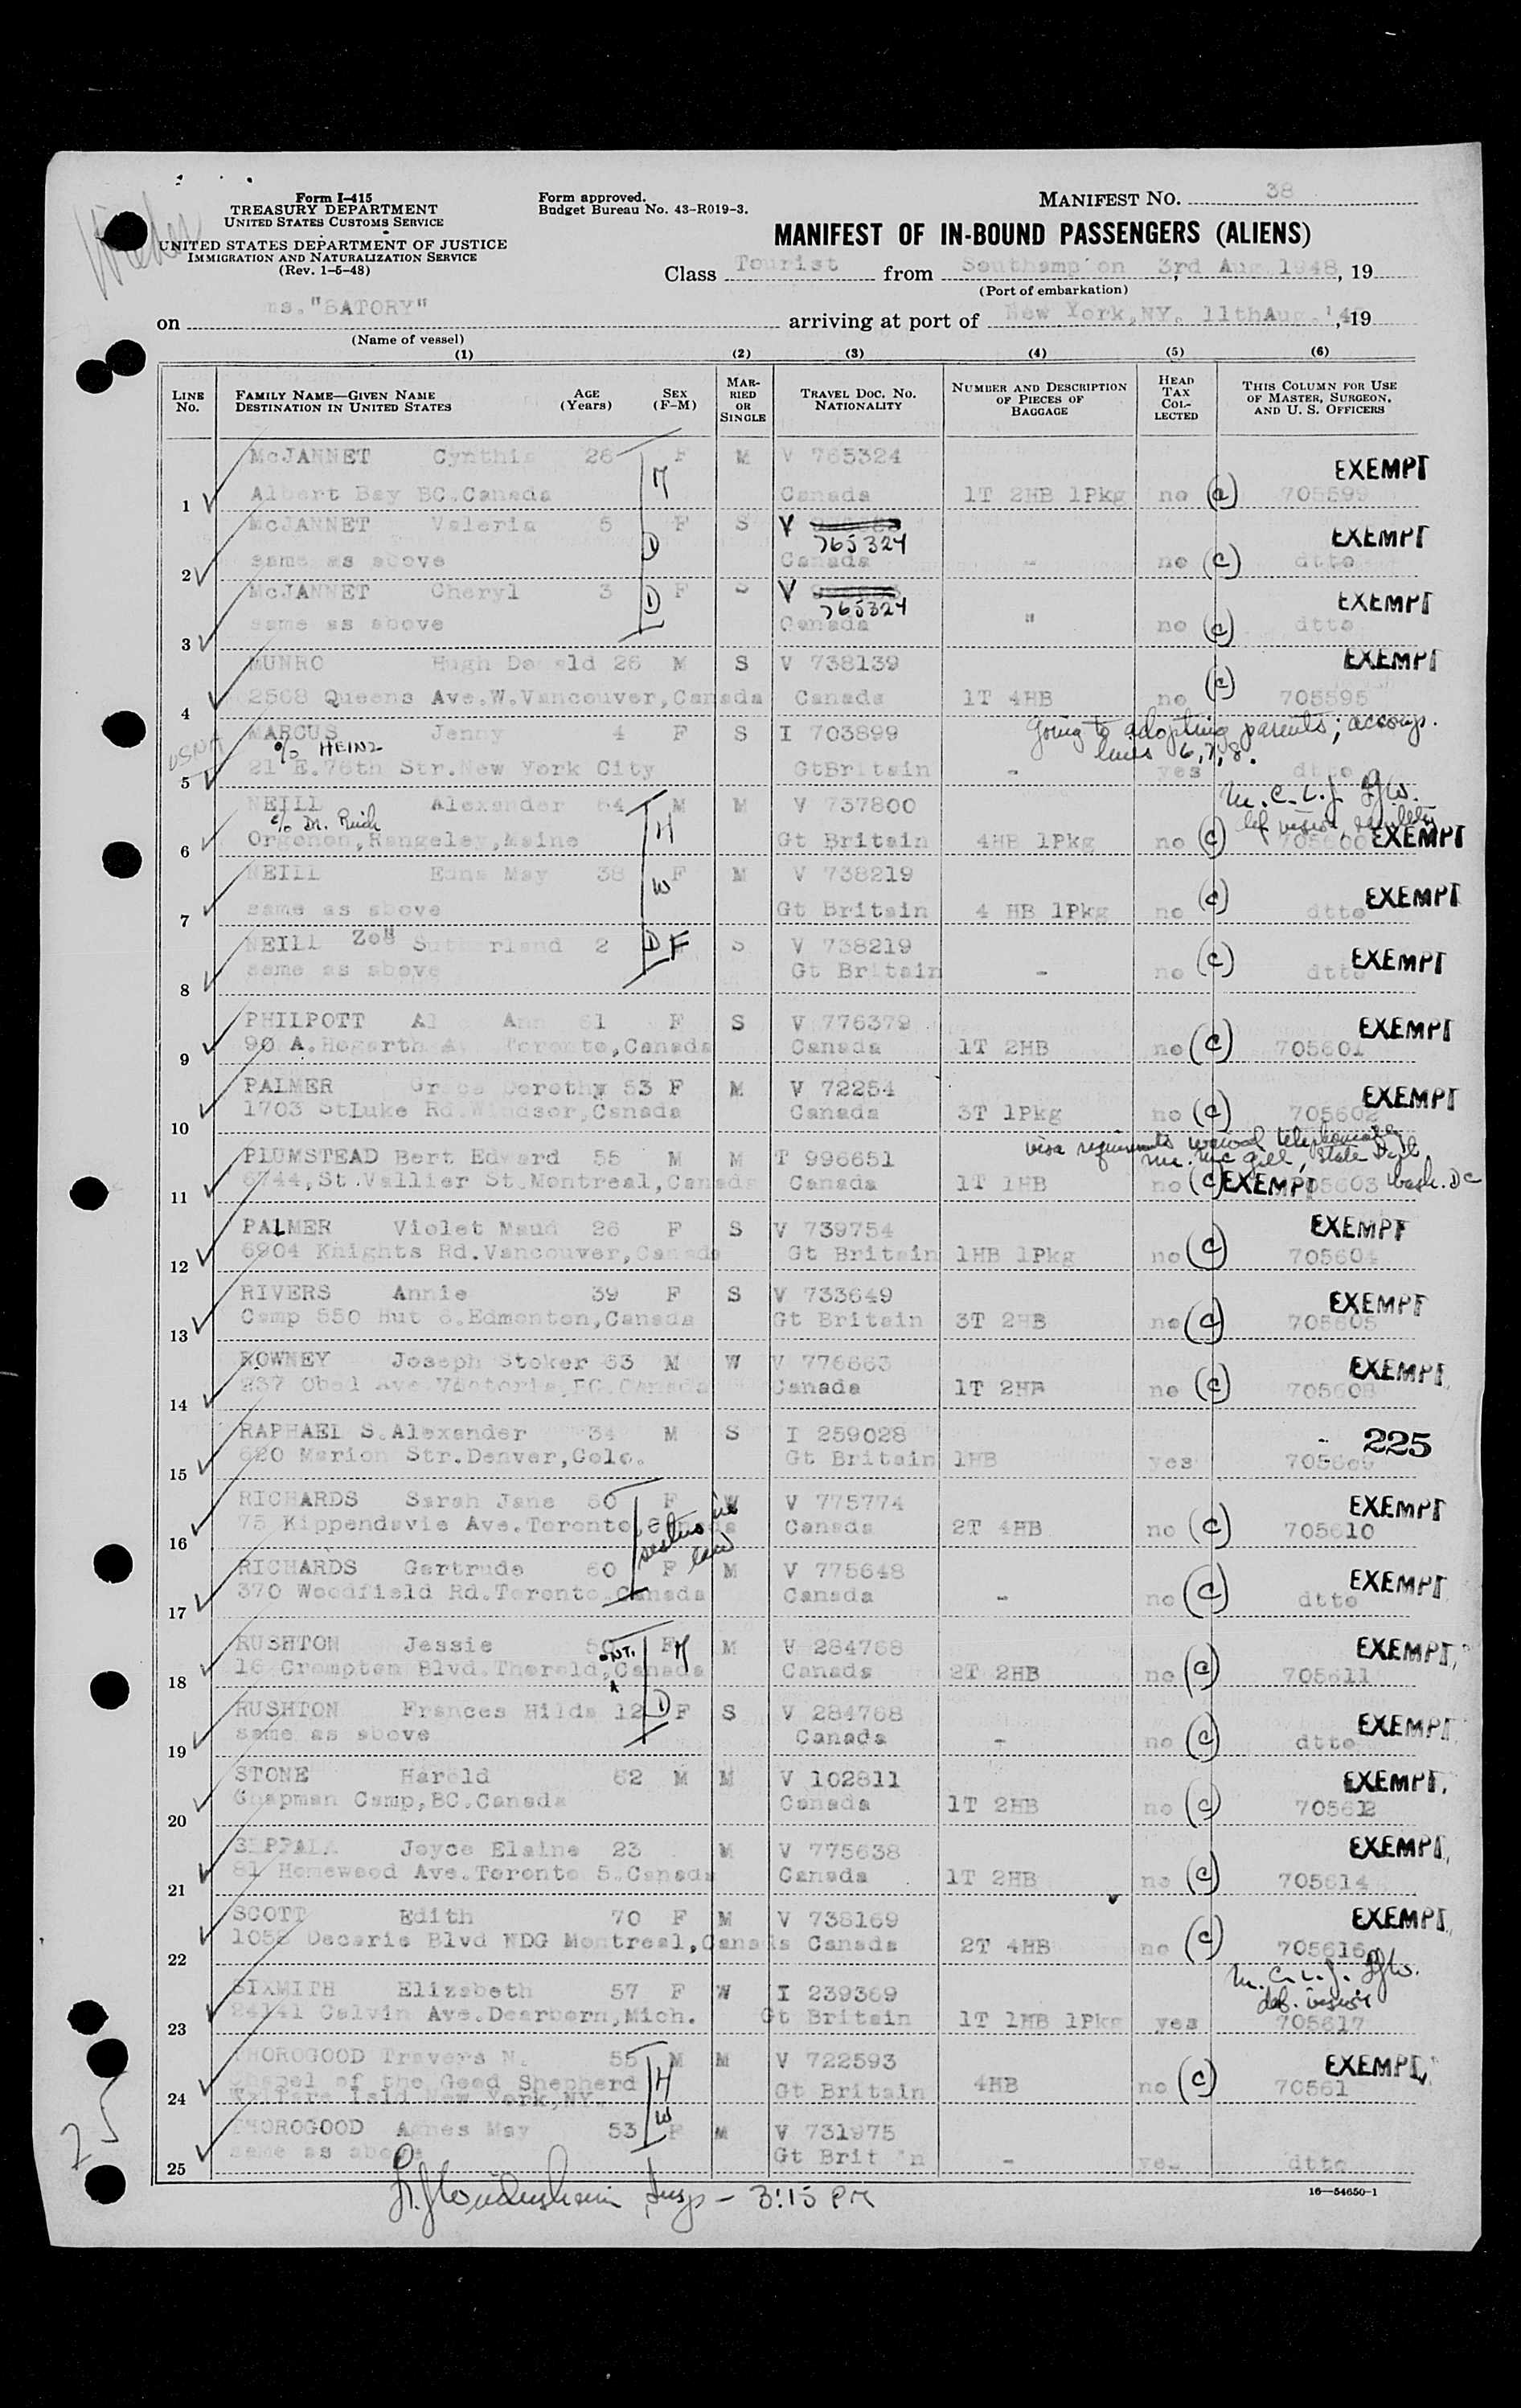 Form I-415
TREASURY DEPARTMENT
UNITED STATES CUSTOMS SERVICE
UNITED STATES DEPARTMENT OF JUSTICE
IMMIGRATION AND NATURALIZATION SERVICE
(Rev. 1-5-48)
Form approved.
Budget Bureau No. 43-R019-3.
MANIFEST NO. 38
MANIFEST OF IN-BOUND PASSENGERS (ALIENS)
Class Tourist from Southamp on 3rd Aug. 1948, 19
(Port of embarkation)
on ms. "BATORY" arriving at port of New York, NY. 11thAug. '4 , 19
(Name of vessel)
(1) (2) (3) (4) (5) (6)
LINE No. FAMILY NAME—GIVEN NAME DESTINATION IN UNITED STATES AGE (Years) SEX (F-M) MARRIED OR SINGLE TRAVEL DOC. NO. NATIONALITY NUMBER AND DESCRIPTION OF PIECES OF BAGGAGE HEAD TAX COLLECTED THIS COLUMN FOR USE OF MASTER, SURGEON, AND U. S. OFFICERS
McJANNET Cynthia 26 F M V 765324 EXEMPT
1 Albert Bay BC.Canada M Canada 1T 2HB 1Pkg no (c) 705599
McJANNET Valeria 5 F S V 765324 EXEMPT
2 same as above D Canada - no (c) dtto
McJANNET Cheryl 3 D F S V 765324 EXEMPT
3 same as above Canada " no (c) dtto
MUNRO Hugh Donald 26 M S V 738139 EXEMPT
4 2568 Queens Ave.W.Vancouver,Canada Canada 1T 4HB no (c) 705595
MARCUS Jenny 4 F S I 703899 Going to adopting parents; accomp. lines 6,7,8.
USNA c/o HEINZ
5 21 E.76th Str.New York City GtBritain - yes dtto
NEILL Alexander 64 M M V 737800 M.C.L.J.
c/o Dr. Reich H
6 Orgonon,Rangeley,Maine Gt Britain 4HB 1Pkg no (c) 705600 EXEMPT
NEILL Edna May 38 F M V 738219
7 same as above W Gt Britain 4 HB 1Pkg no (c) dtto EXEMPT
NEILL Zoë Sutherland 2 D F S V 738219
8 same as above Gt Britain - no (c) dtto EXEMPT
PHILPOTT Al Ann 61 F S V 776379 EXEMPT
9 90 A.Hogarth A Toronto,Canada Canada 1T 2HB no (c) 705601
PALMER Grace Dorothy 53 F M V 72254 EXEMPT
10 1703 StLuke Rd.Windsor,Canada Canada 3T 1Pkg no (c) 705602
visa requirements waived telephonically
Mr. McGill, State Dept. Wash. DC
PLUMSTEAD Bert Edward 55 M M T 996651
11 6744,St.Vallier St.Montreal,Canada Canada 1T 1HB no (c) EXEMPT 705603
PALMER Violet Maud 26 F S V 739754 EXEMPT
12 6904 Knights Rd.Vancouver,Canada Gt Britain 1HB 1Pkg no (c) 705604
RIVERS Annie 39 F S V 733649 EXEMPT
13 Camp 550 Hut 6.Edmonton,Canada Gt Britain 3T 2HB no (c) 705605
ROWNEY Joseph Stoker 63 M W V 776663 EXEMPT
14 237 Obed Ave Victoria,BC.Canada Canada 1T 2HB no (c) 705608
RAPHAEL S.Alexander 34 M S I 259028 - 225
15 620 Marion Str.Denver,Colo. Gt Britain 1HB yes 705609
RICHARDS Sarah Jane 60 F W V 775774 EXEMPT
16 75 Kippendavie Ave.Toronto,Canada sisters in law Canada 2T 4HB no (c) 705610
RICHARDS Gertrude 60 F M V 775648 EXEMPT
17 370 Woodfield Rd.Toronto.Canada Canada - no (c) dtto
RUSHTON Jessie F M M V 284768 EXEMPT
18 16 Crompton Blvd.Thorold, ONT. Canada Canada 2T 2HB no (c) 705611
RUSHTON Frances Hilda 12 D F S V 284768 EXEMPT
19 same as above Canada - no (c) dtto
STONE Harold 62 M M V 102811 EXEMPT
20 Chapman Camp,BC.Canada Canada 1T 2HB no (c) 705612
SEPPALA Joyce Elaine 23 M V 775638 EXEMPT
21 81 Homewood Ave.Toronto 5.Canada Canada 1T 2HB no (c) 705614
SCOTT Edith 70 F M V 738169 EXEMPT
22 1055 Decarie Blvd NDG Montreal,Canada Canada 2T 4HB no (c) 705616
SIXMITH Elizabeth 57 F W I 239369 M.C.L.J.
def. vision
23 24141 Calvin Ave.Dearborn,Mich. Gt Britain 1T 1HB 1Pkg yes 705617
THOROGOOD Travers N. 55 M M V 722593 EXEMPT
Chapel of the Good Shepherd H
24 Welfare Isld New York,NY. Gt Britain 4HB no (c) 70561
THOROGOOD Agnes May 53 W F M V 731975
25 same as above Gt Brit n - yes dtto
Insp - 3:15 PM
25
16—54650-1